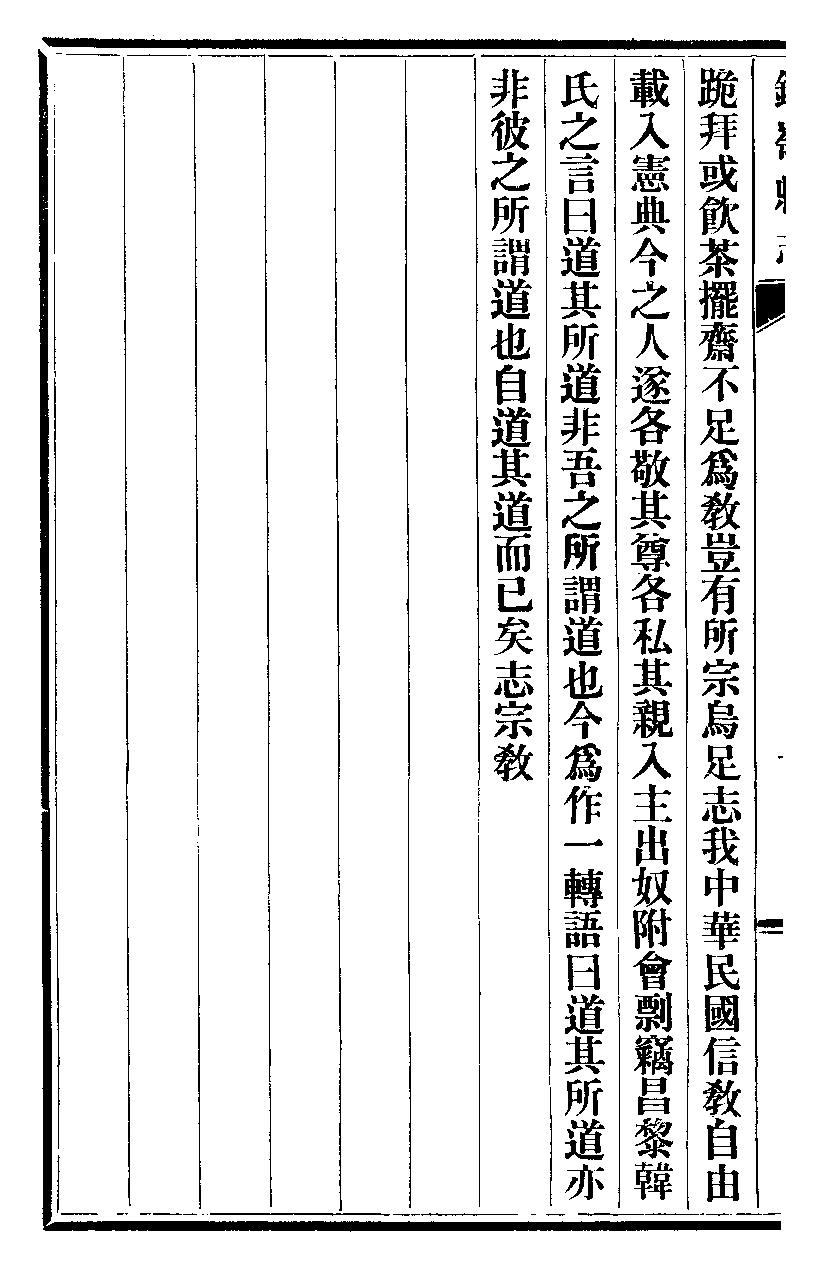 跪拜或飲茶擺齋不足爲敎豈有所宗烏足志我中華民國信敎自由
載入憲典今之人遂各敬其尊各私其親入主出奴附會剽竊昌黎韓
氏之言曰道其所道非吾之所謂道也今爲作一轉語曰道其所道亦
非彼之所謂道也自道其道而已矣志宗敎